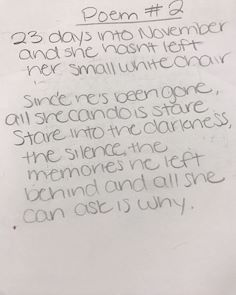 Poem # 2
23 days into November
and she hasnt left
her small white chair
Since he's been gone,
all she can do is stare
Stare into the darkness,
the silence, the
memories he left
behind and all she
can ask is why.